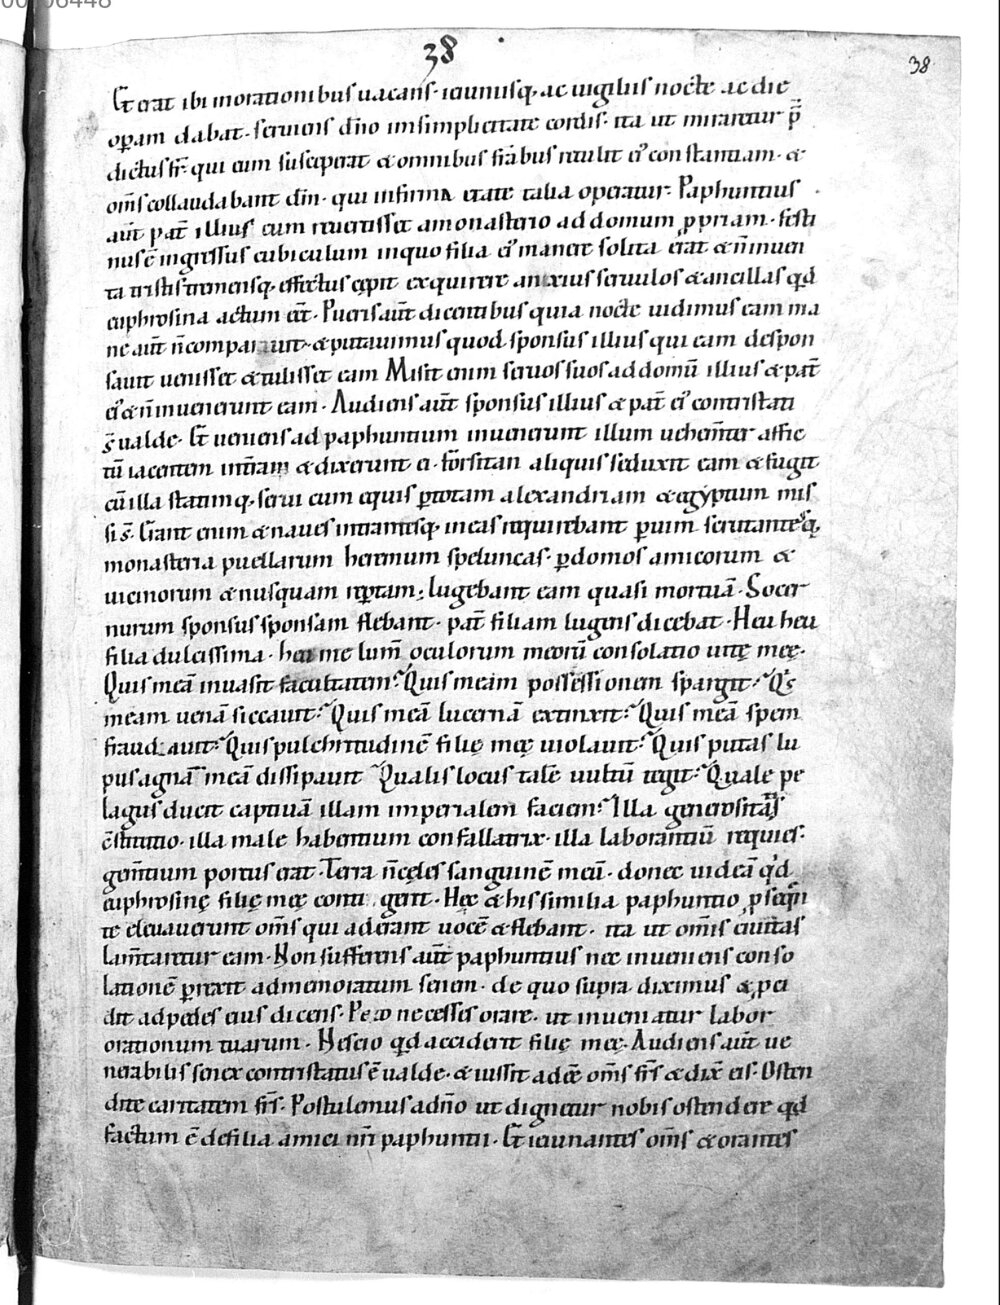 38
38
Et erat ibi inorationibus uacans· ieiuniisq; ac uigiliis nocte ac die
opam dabat· seruiens dño insimplicitate cordis· ita ut miraretur p̄
dictus fr̄· qui eum susceperat & omnibus fr̄ibus retulit ei' constantiam· &
om̄s collaudabant dm̄· qui infirma etate talia operatur· Paphuntius
aut̄ pat̄ illius cum reuertisset amonasterio addomum ꝓpriam· festi
nus ē ingressus cubiculum inquo filia ei' manere solita erat & n̄ inueni
ta tristis tremensq; effectus cępit exquirere anxius seruulos & ancillas qd
euphrosina actum eēt· Pueris aut̄ dicentibus quia nocte uidimus eam ma
ne aut̄ n̄ comparuit· & putauimus quod sponsus illius qui eam despon
sauit uenisset & tulisset eam Misit enim seruos suos addomū illius & pat̄
ei' & n̄ inuenerunt eam· Audiens aut̄ sponsus illius & pat̄ ei' contristati
s̄ ualde· Et ueniens ad paphuntium inuenerunt illum uehem̄ter afflic
tū iacentem int̄ram & dixerunt ei· forsitan aliquis seduxit eam & fugit
cū illa statimq; serui cum equis ꝑtotam alexandriam & egyptum mis
si s̄· Erant enim & naues intrantesq; ineas requirebant ꝑuim scrutantesq;
monasteria puellarum heremum speluncas· ꝑdomos amicorum &
uicinorum & nusquam reꝑtam; lugebant eam quasi mortuā· Socer
nurum sponsus sponsam flebant· pat̄ filiam lugens dicebat· Heu heu
filia dulcissima· heu me lum̄ oculorum meorū consolatio uitę meę·
Quis meā inuasit facultatem? Quis meam possessionem spargit? Q's
meam uenā siccauit? Quis meā lucernā extinxit? Quis meā spem
fraudauit? Quis pulchritudinē filię meę uiolauit? Quis putas lu
pus agnā meā dissipauit Qualis locus talē uultū tegit? Quale pe
lagus ducit captiuā illam imperialem faciem? Illa generositas
ēstitutio· illa male habentium confallatrix· illa laborantiū requies·
gem̄tium portus erat· Terra n̄ cęles sanguinē meū· donec uideā q'd
euphrosinę filię meę contigerit· Hęc & his similia paphuntio ꝓsequ
te eleuauerunt om̄s qui aderant uocē & flebant· ita ut om̄is ciuitas
lam̄taretur eam· Non sufferens aut̄ paphuntius nec inueniens conso
lationē ꝑrexit admemoratum senem· de quo supra diximus & ꝓci
dit adpedes eius dicens· Peto ne cesses orare· ut inueniatur labor
orationum tuarum· Nescio qd acciderit filię meę· Audiens aut̄ ue
nerabilis senex contristatus ē ualde· & iussit adeē om̄s fr̄s & dix̄ eis· Osten
dite caritatem fr̄s· Postulemus adño ut dignetur nobis ostendere qd
factum ē defilia amici nr̄i paphuntii· Et ieiunantes om̄s & orantes